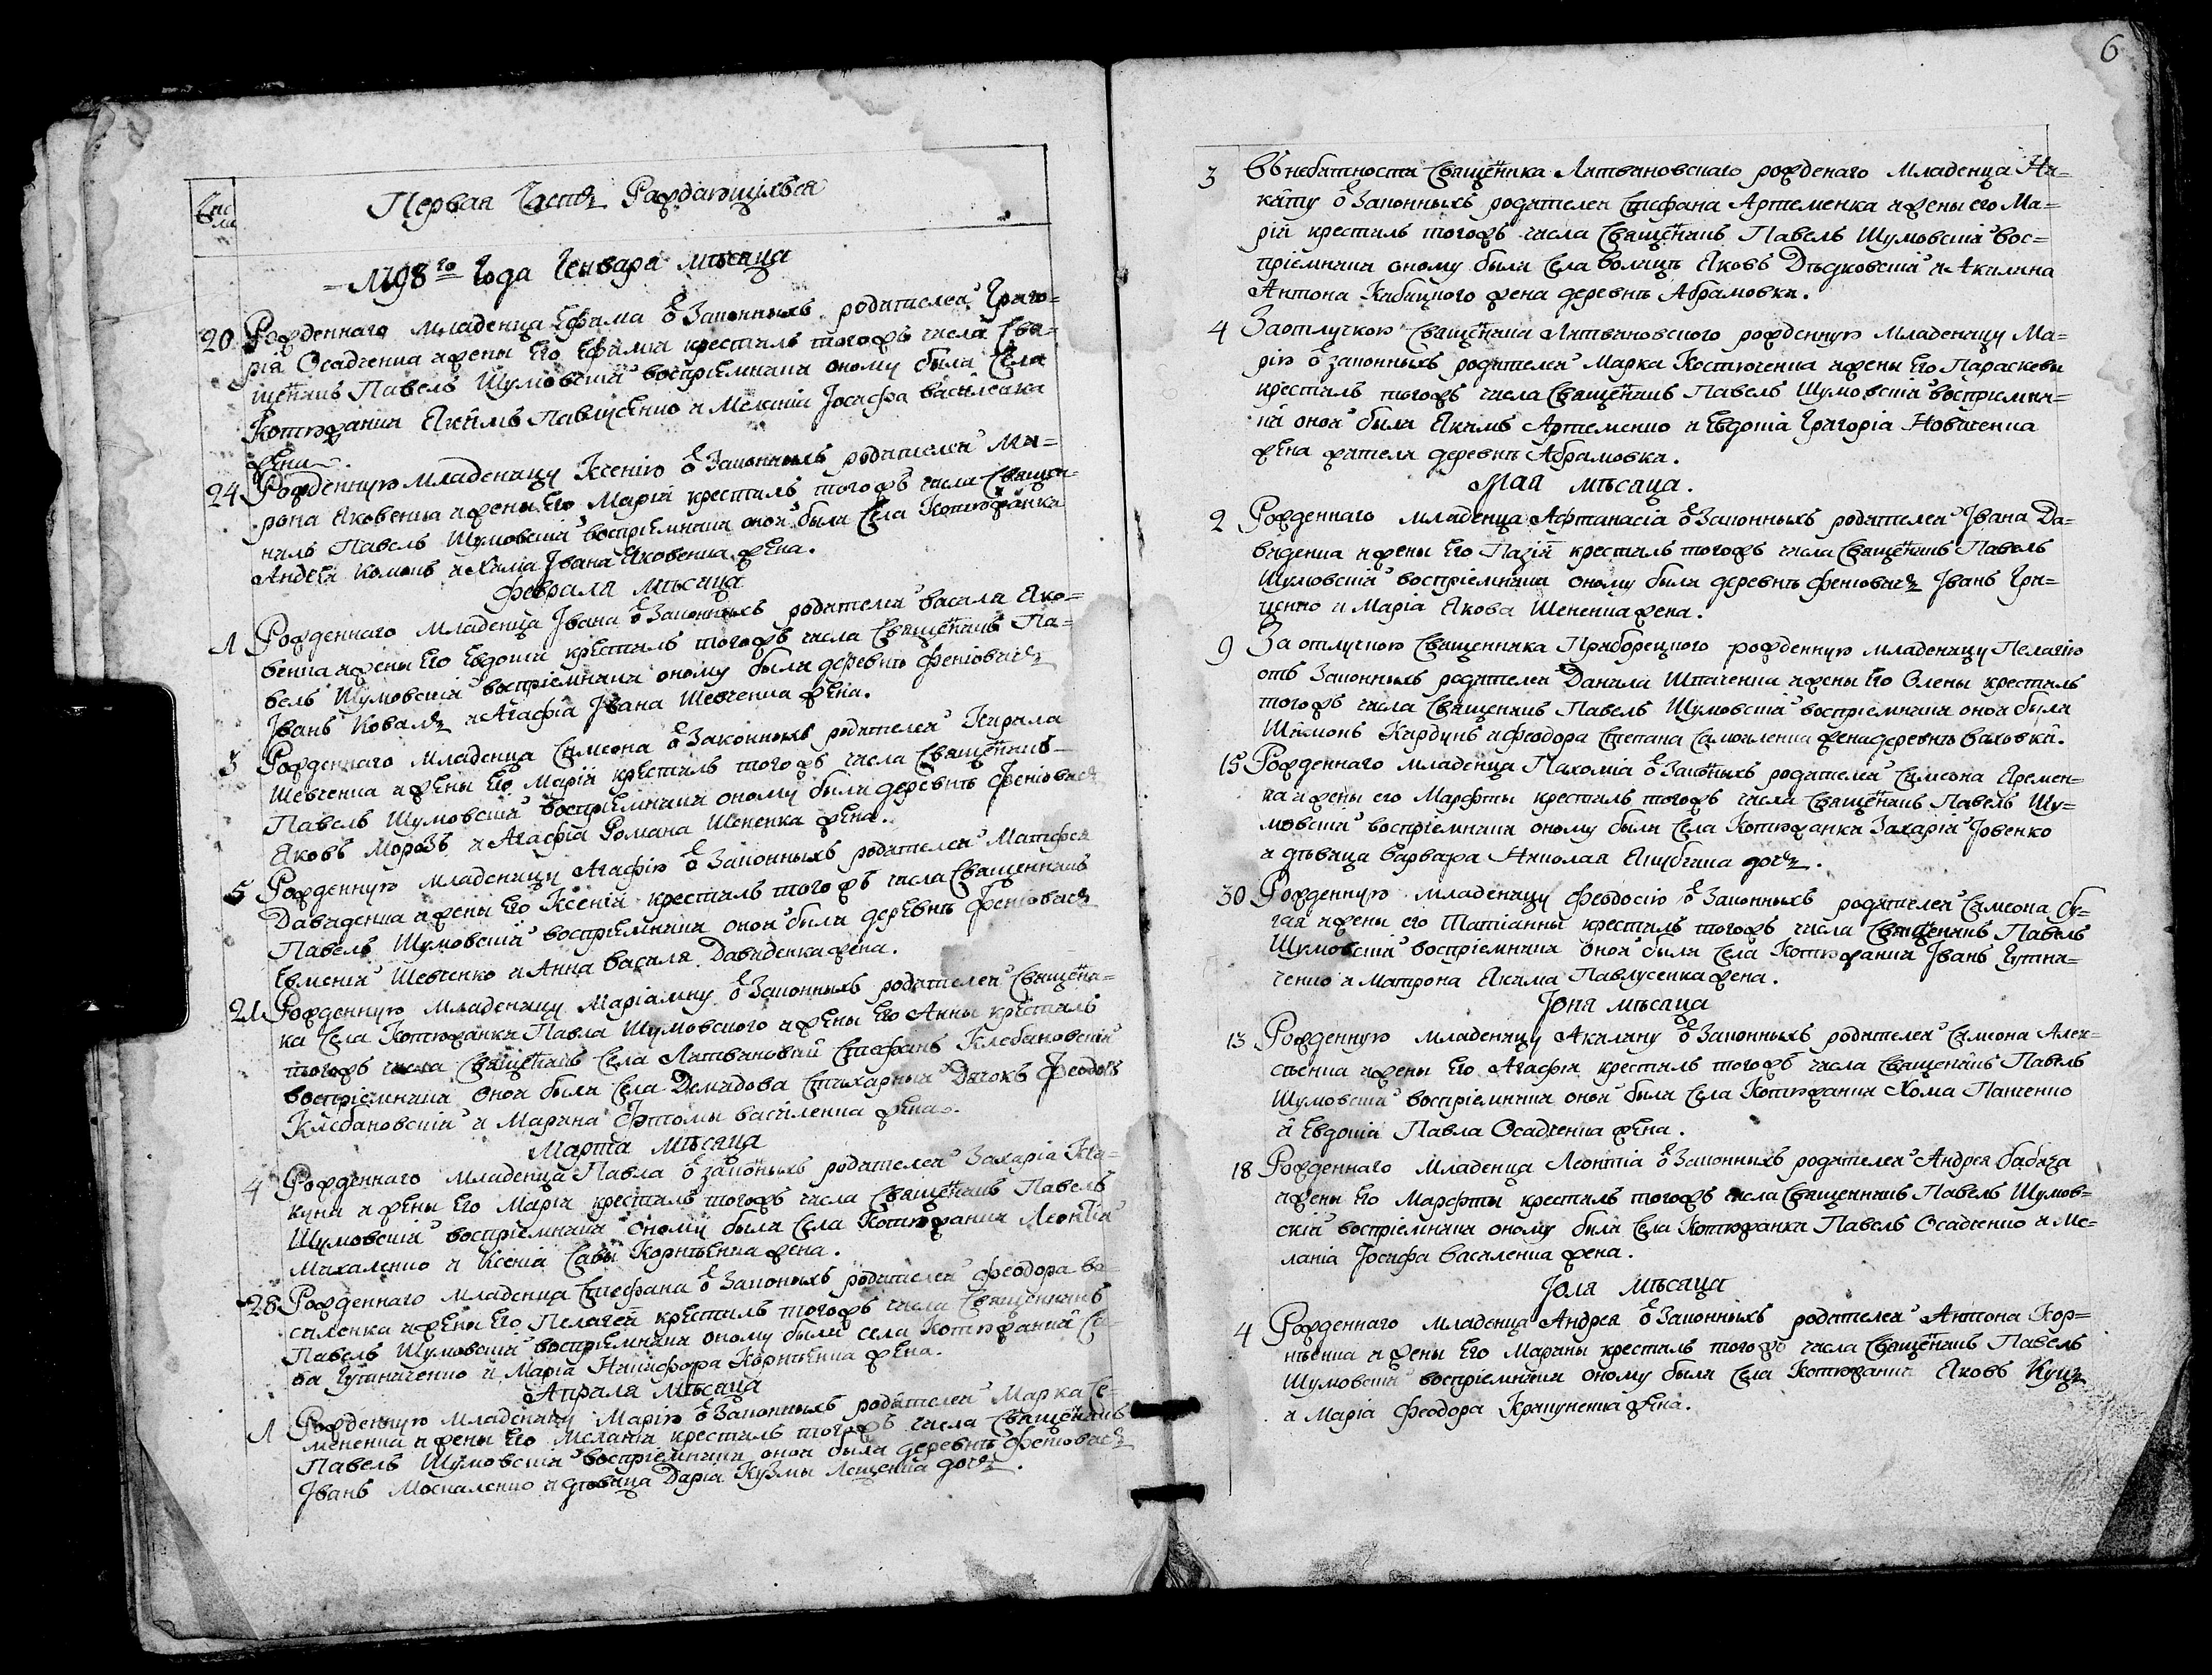 Чис
ла
Первая Часть Раждающихъся
1798го Года Генваря мѣсяца
20 Рожденнаго младенца Ефима ѿ Законныхъ родителей Григо=
рія Осадченка и жены Его Ефимиі крестилъ тогожъ числа Свя=
щенникъ Павелъ Шумовскій воспріемники оному были Села
Котюжанки Якимъ Павлусенко и Меланія Іосифа Василенка
жена.
24 Рожденную младеницу Ксенію ѿ Законныхъ родителей Ми=
рона Яковенка и жены Его Маріи крестилъ тогожъ числа Священ=
никъ Павелъ Шумовскій воспріемники оной были Села Котюжанки
Андрей и Іуана Яковенка жена.
Февраля мѣсяца
1 Рожденнаго младенца Івана ѿ Законныхъ родителей Василя Яко=
венка и жены Его Евдокіи крестилъ тогожъ числа Священникъ Па=
велъ Шумовскій воспріемники оному были деревнѣ Феніовичъ
Іванъ Коваль и Агафія Івана Шевченка жена.
3 Рожденнаго младенца Симеона ѿ Законныхъ родителей Кирила
Шевченка и жены Его Маріи крестилъ тогожъ числа Священникъ
Павелъ Шумовскій воспріемники оному были деревнѣ Феніовичъ
Яковъ Морозъ и Агафія Романа Шененка жена.
5 Рожденную младеницу Агафію ѿ Законныхъ родителей Матфея
Давиденка и жены Его Ксеніи крестилъ тогожъ числа Священникъ
Павелъ Шумовскій воспріемники оной были деревнѣ Феніовичъ
Евменій Шевченко и Анна Василя Давиденка жена.
21 Рожденную младеницу Маріамну ѿ Законныхъ родителей Священи=
ка Села Котюжанки Павла Шумовского и жены Его Анны крестилъ
тогожъ числа Священникъ Села Литвиновки Стефанъ Клебановскій
воспріемники оной были Села Демидова Стихарный Дячокъ Феодоръ
Клебановскій и Марина Фтомы Василенка жена.
Марта мѣсяца
4 Рожденнаго младенца Павла ѿ законныхъ родителей Захарія
куна и жены Его Маріи крестилъ тогожъ числа Священникъ Павелъ
Шумовскій воспріемники оному были Села Котюжанки Леонтій
Михаленко и Ксенія Савы Корнѣенка жена.
28 Рожденнаго младенца Стефана ѿ Законныхъ родителей Феодора Ва=
силенка и жены Его Пелагеи крестилъ тогожъ числа Священникъ
Павелъ Шумовскій воспріемники оному были села Котюжанки Са=
ва и Марія Никифора Корнѣенка жена.
Априля мѣсяца
1 Рожденную младеницу Марію ѿ Законныхъ родителей Марка Се=
мененка и жены Его Меланіи крестилъ тогожъ числа Священникъ
Павелъ Шумовскій воспріемники оной были деревнѣ Феніовичъ
Іванъ Москаленко и дѣвица Дарія Кузмы Лещенка дочь.
6
3 Въ небытности Священика Литвиновскаго рожденаго младенца Ни=
киту ѿ Законныхъ родителей Стефана Артеменка и жены его Ма=
ріи крестилъ тогожъ числа Священникъ Павелъ Шумовскій вос=
пріемники оному были Села Яковъ Дѣдковскій и Акилина
Антона Кабацкого жена деревнѣ Абрамовки.
4 За отлучкою Священика Литвиновского рожденную младеницу Ма=
рію ѿ законныхъ родителей Марка Костюченка и жены Его Параскевы
крестилъ тогожъ числа Священникъ Павелъ Шумовскій воспріемни=
ки оной были Якимъ Артеменко и Евдокія Григорія Новиченка
жена жители деревнѣ Абрамовки.
Мая мѣсяца.
2 Рожденнаго младенца Афтанасія ѿ Законныхъ родителей Івана Да=
виденка и жены Его Пазіи крестилъ тогожъ числа Священникъ Павелъ
Шумовскій воспріемники оному были деревнѣ Феніовичъ Іванъ Гри=
ценко и Марія Якова Шененка жена.
9 За отлучкою Священника Приборецкого рожденную младеницу Пелагію
отъ Законныхъ родителей Данила Шпаченка и жены Его Олены крестилъ
тогожъ числа Священикъ Павелъ Шумовскій воспріемники оной были
Кардунъ и Феодора Степана Самойленка жена деревнѣВаховки.
15 Рожденнаго младенца Пахомія ѿ Законыхъ родителей Симеона Яремен=
ка и жены его Марфты крестилъ тогожъ числа Священникъ Павелъ Шу=
мовскій воспріемники оному были Села Котюжанки Захарій Іовенко
и дѣвица Варвара Николая Якубчика дочь.
30 Рожденную младеницу Феодосію ѿ Законныхъ родителей Симеона Бу=
гая и жены его Татіанны крестилъ тогожъ числа Священникъ Павелъ
Шумовскій воспріемники оной были Села Котюжанки Іванъ Гутни=
ченко и Матрона Якима Павлусенка жена.
Іюня мѣсяца
13 Рожденную младеницу Акилину ѿ Законныхъ родителей Симеона Алек=
сѣенка и жены Его Агафіи крестилъ тогожъ числа Священникъ Павелъ
Шумовскій воспріемники оной были Села Котюжанки Хома Панченко
и Евдокія Павла Осадченка жена.
18 Рожденнаго младенца Леонтія ѿ Законныхъ родителей Андрея Бабича
и жены Его Марфты крестилъ тогожъ числа Священникъ Павелъ Шумов=
скій воспріемники оному были Села Котюжанки Павелъ Осадченко и Ме=
ланія Іосифа Василенка жена.
Іюля мѣсяца
4 Рожденнаго младенца Андрея ѿ Законныхъ родителей Антона Кор=
нѣенка и жены Его Марины крестилъ тогожъ числа Священникъ Павелъ
Шумовскій воспріемники оному были Села Котюжанки Яковъ Куць
и Марія Феодора Крапуненка жена.